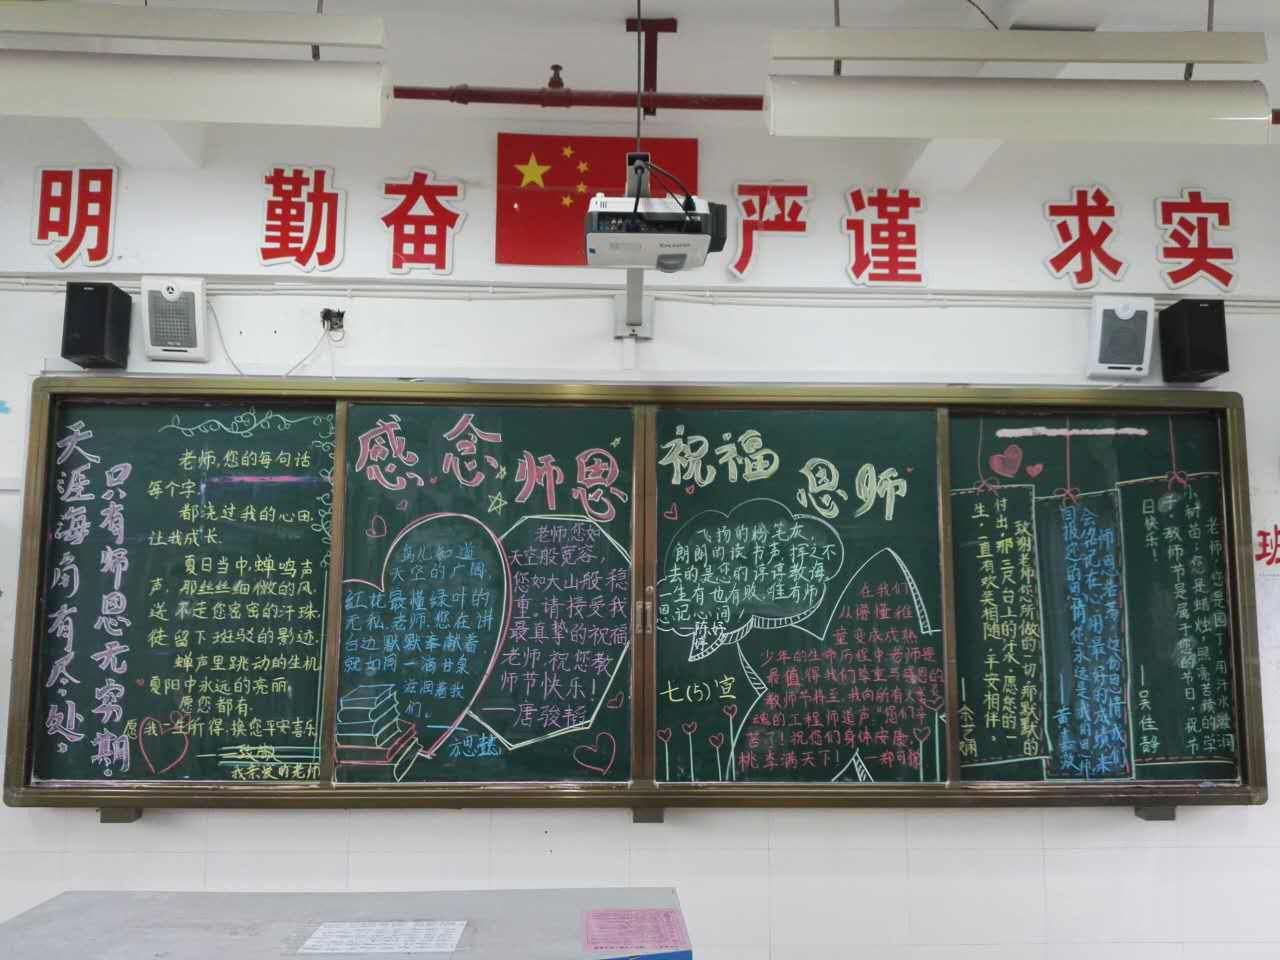 明 勤 奋 严 谨 求 实
班
天涯海角有尽处，
只有师恩无穷期。
老师，您的每句话
每个字，
都浇过我的心田，
让我成长。
夏日当中，蝉鸣声
声，那丝丝细微的风，
送不走您密密的汗珠，
徒留下斑驳的影迹，
蝉声里跳动的生机
夏阳中永远的亮丽，
愿您都有。
愿我一生所得，换您平安喜乐
致敬
我亲爱的老师
感念师恩
鸟儿知道
天空的广阔，
红花最懂绿叶的
无私，老师，您在讲
台边默默奉献着，
就如同一滴甘泉，
滋润着我
们。
老师，您如
天空般宽容，
您如大山般稳
重，请接受我
最真挚的祝福
老师，祝您教
师节快乐！
——唐骏韬
祝福恩师
飞扬的粉笔灰，
朗朗的读书声，挥之不
去的是您的谆谆教诲，
一生有也有败，唯有师
恩记心间，
七(5)宣
在我们
从懵懂稚
童变成成熟
少年的生命历程中，老师是
最值得我们尊重与感恩的。
教师节将至，我向所有人类灵
魂的工程师道声：“您们辛
苦了！祝您们身体安康，
桃李满天下！
致谢老师您所做的一切，那默默的
付出，那三尺台上的汗水，愿您的一
生，一直有欢笑相随，平安相伴。
老师，您是园丁，用汗水滋润
小树苗；您是蜡烛，照亮苦读的学
子，教师节是属于您的节日，祝节
日快乐！
——吴佳静